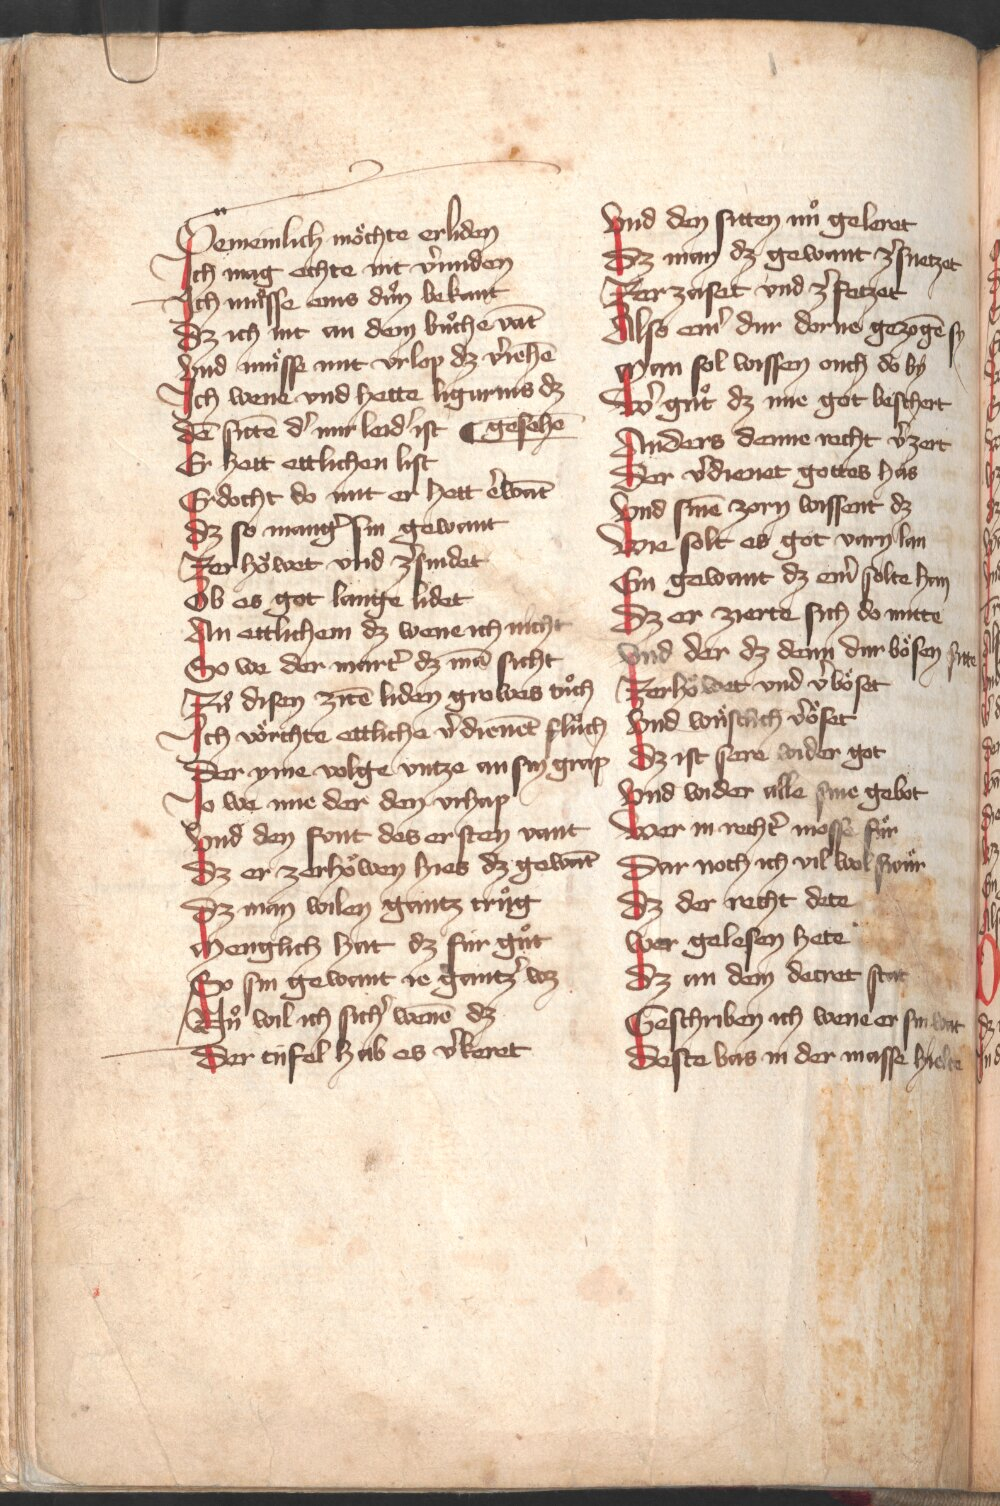 Gemeinlich möchte erliden
Ich mag echte nit v̓miden
Ich mu̓sse eins du̓n bekant
Dz ich nit an dem bůche vāt
Vnd mu̓sse mit vrlop dz v̓iehē
Ich wene vnd hette ligurius dz
Dē sittē d̓ mir leid̓ ist ¶ gesehē
Er hett ettlichen list
Erdocht do mit er hett e̓wāt
Dz so mang̓ sin gewant
Zerhöwet vnd z̓snidet
Ob es got lange lidet
An ettlichem dz wene ich nicht
So we der mart̓ dz mā sicht
Zů disen zitē liden growes tůch
Ich vörchte ettliche v̓dienēt flůch
Der yme volge vntze an sin grap
Jo we me der den vrhap
Vnd den funt des ersten vant
Dz er zerhöwen hies dz gewāt
Dz man wilen gantz trůg
Menglich hat dz für gůt
So sin gewant ie gantz̓ wz
Nů wil ich sich̓ wenē dz
Der tüfel hab es v̓keret
Vnd den sitten nů geleret
Dz man dz gewant z̓snetzet
Zerzaset vnd z̓fetzet
Also ein̓ dur dorne gezogē sy
Man sol wissen ouch do by
Wo̓ gůt dz me got beschert
Anders denne recht v̓zert
Der v̓dienet gottes has
Vnd sinē zorn wissent dz
Wie solt es got varn lan
Ein gewant dz ein̓ solte han
Dz er zierte sich do mitte
Vnd der dz denn dur bösen sitte
Zerhöwet vnd v̓böset
Vnd wu̓stlich v̓öset
Dz ist sere wider got
Vnd wider alle sine gebot
Wer in recht̓ mosse fůr
Dar noch ich vil wol swůr
Dz der recht dete
Wer gelesen hete
Dz an dem decret stat
Geschriben ich wene er sin wat
Deste bas in der masse hielte